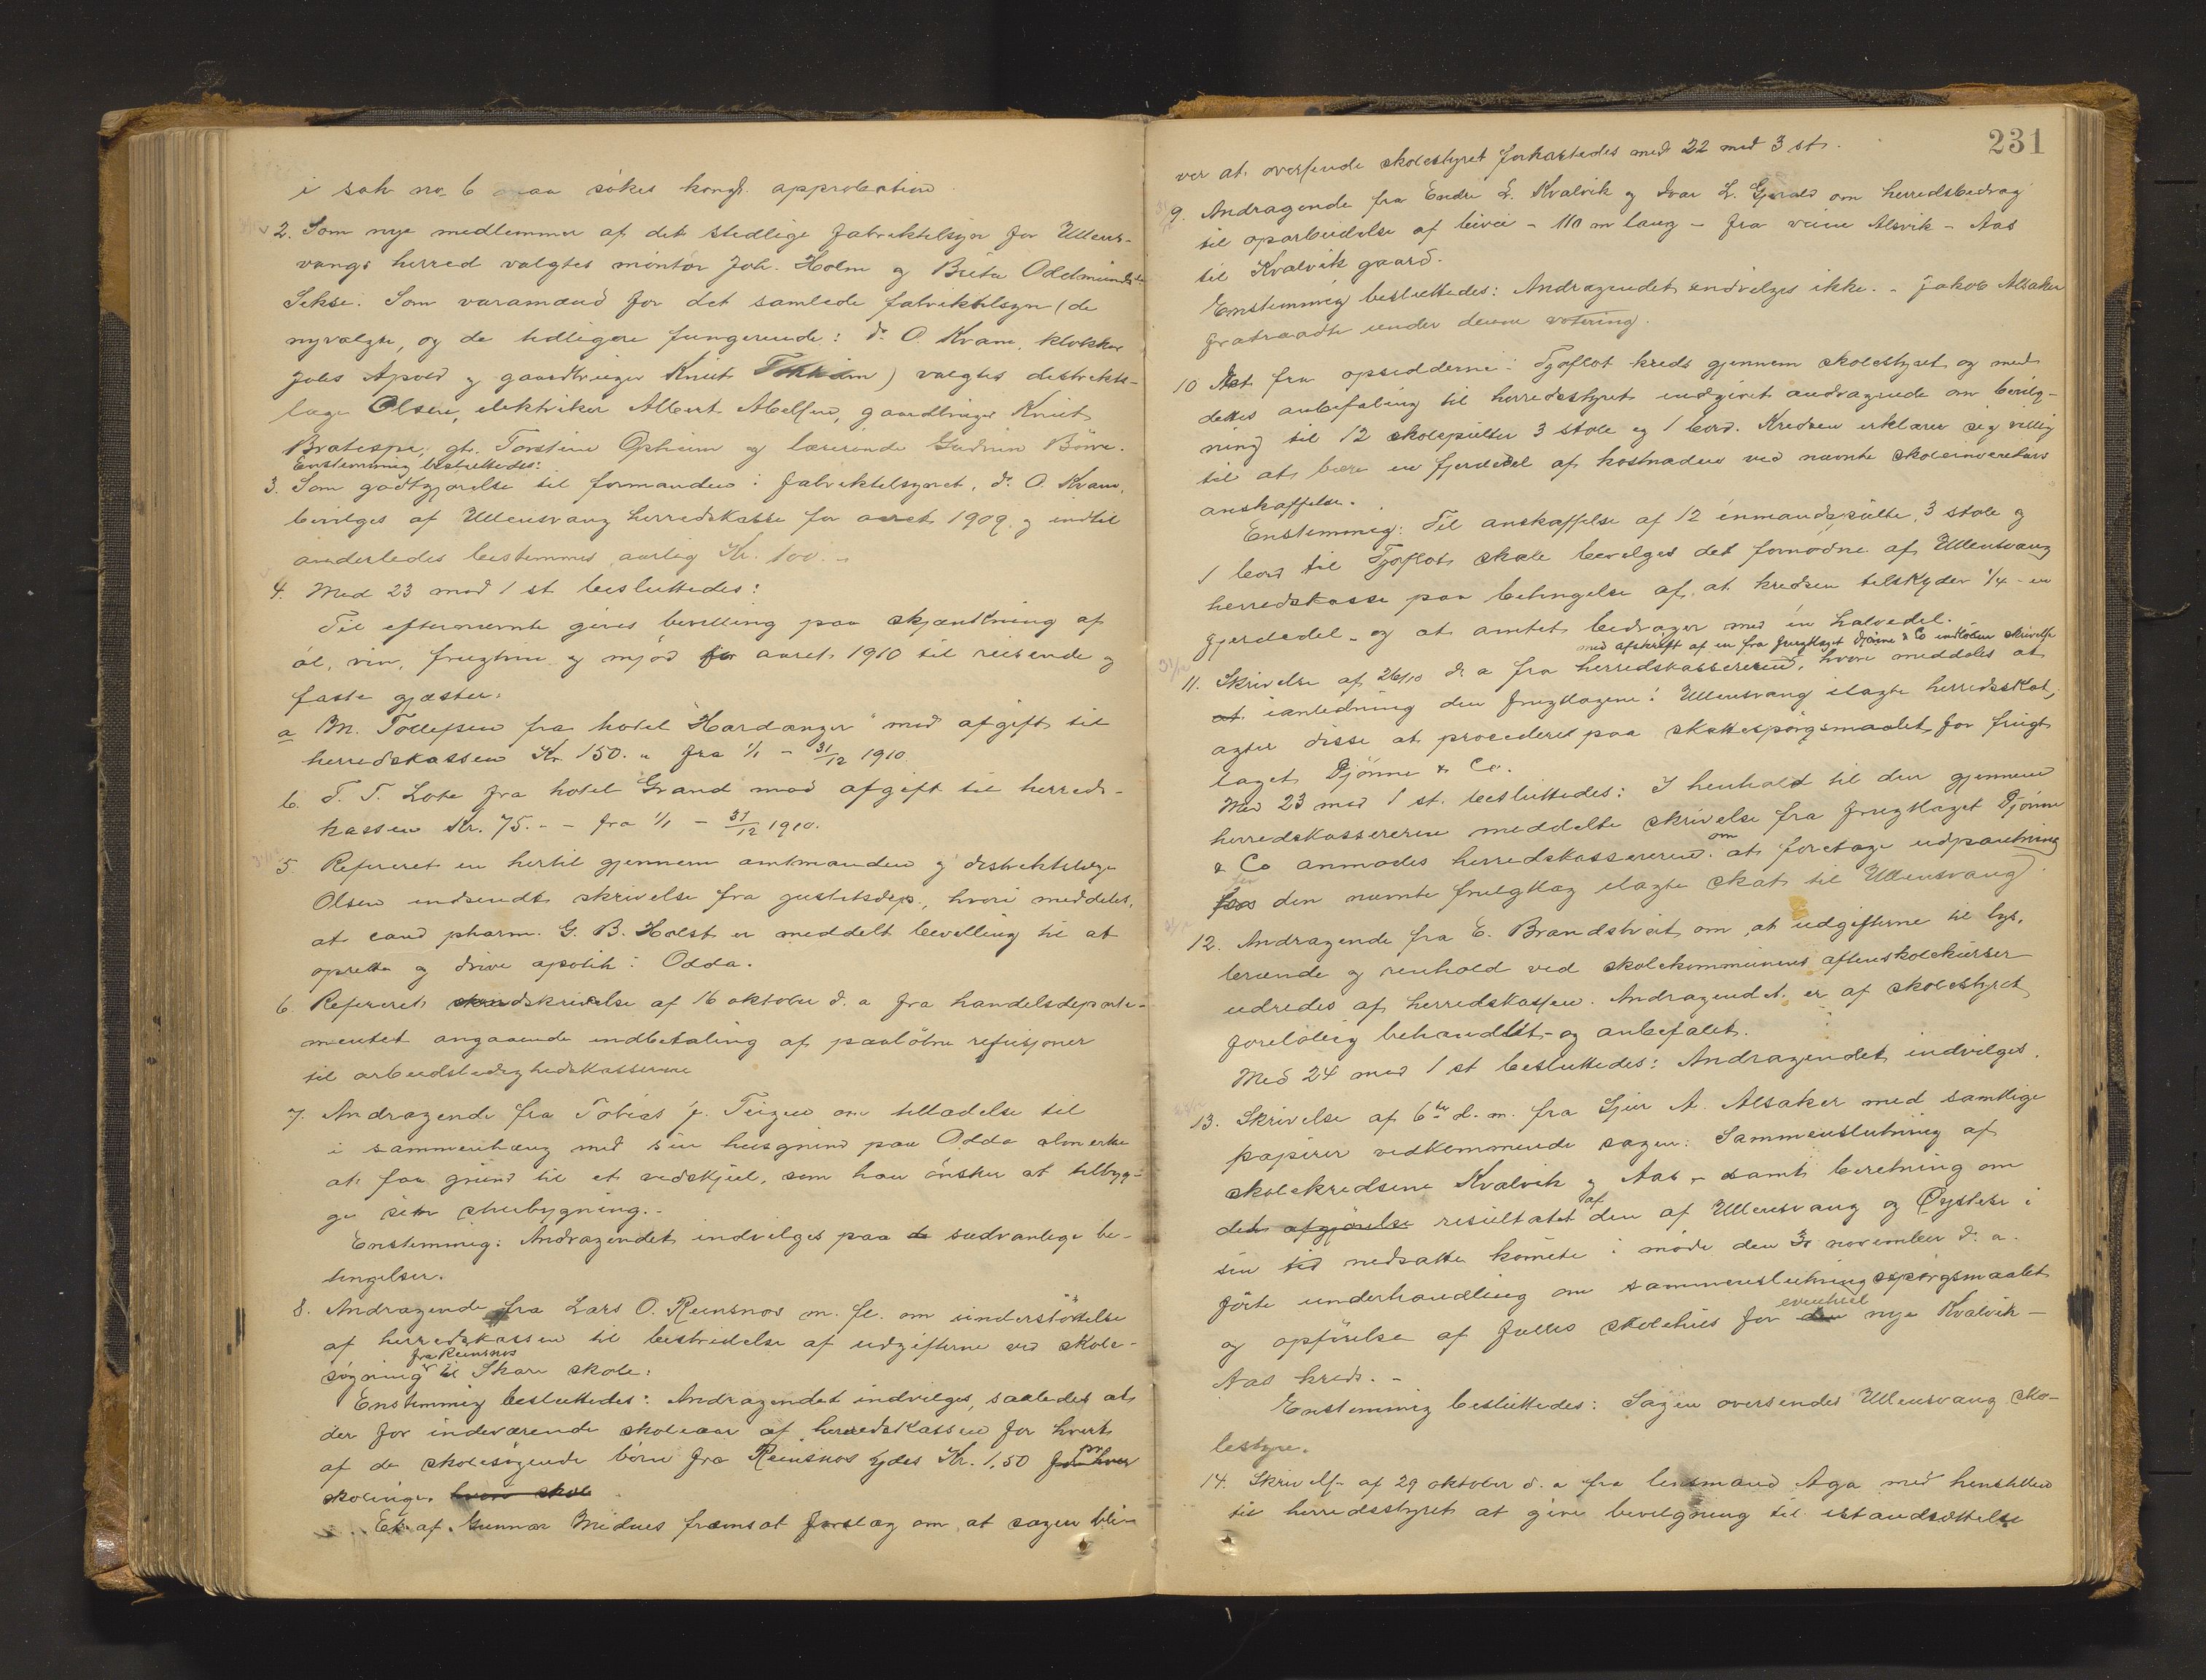 i sak no 6 maa søkes kongl. approbation
2. Som nye medlemmer af det stedlige fabriktilsyn for Ullens-
vangs herred valgtes montør Joh. Holm og Brita Oddmundsd.
Sekse. Som varamænd for det samlede fabriktilsyn (de
nyvalgte, og de tidligere fungerende: dr O. Kvam, klokker
Johs Apold og gaardbruger Knut Tokheim) valgtes distrikts-
læge Olsen, elektriker Albert Abelsen, gaardbruger Knut
Bratespe, gb. Torstein Opheim og lærerinde Gudrun Børve.
Enstemmig besluttedes:
3. Som godtgjørelse til formanden i fabriktilsynet, dr. O. Kvam,
bevilges af Ullensvang herredskasse for aaret 1909 og indtil
anderledes bestemmes aarlig Kr. 100.-
4. Med 23 mod 1 st besluttedes:
Til efternævnte gives bevilling paa skjænkning af
øl, vin, frugtvin og mjød for aaret 1910 til reisende og
faste gjæster:
a M. Tollefsen fra hotel "Hardanger" mod afgift til
herredskassen Kr 150.- fra 1/1 - 31/12 1910.
b. T. T. Lote fra hotel Grand mod afgift til herreds-
kassen Kr. 75.- - fra 1/1 - 31/12 1910.
5. Refereret en hertil gjennem amtmanden og distriktslæge
Olsen indsendt skrivelse fra justitsdep., hvori meddeles,
at cand pharm. G. B. Holst er meddelt bevilling til at
oprette og drive apotek i Odda.
6. Refereret rundskrivelse af 16 oktober d. a fra handelsdeparte-
mentet angaaende indbetaling af paaløbne refusjoner
til arbeidsledighedskasserne
7. Andragende fra Tobias J. Teigen om tilladelse til
i sammenhæng med sin husgrund paa Odda almenning
at faa grund til et vedskjul, som han ønsker at tilbyg-
ge sin stuebygning.-
Enstemmig: Andragendet indvilges paa de sædvanlige be-
tingelser.
8. Andragende fra Lars O. Reinsnos m. fl. om understøttelse
af herredskassen til bestridelse af udgifterne ved skole-
fra Reinsnos
søgning til Skare skole:
Enstemmig besluttedes: Andragendet indvilges, saaledes at
der for indeværende skoleaar af herredskassen for hvert
af de skolesøgende børn fra Reinsnos ydes Kr. 1.50 for hver pr
skoleuge. hver skole
Et af Gunnar Midnes fremsat forslag om at sagen bli-
231
ver at oversende skolestyret forkastedes med 22 mod 3 st.
9. Andragende fra Endre L. Kvalvik og Ivar L. Gjerald om herredsbidrag
til oparbeidelse af bivei - 110 m lang - fra veien Alsvik - Aas
til Kvalvik gaard.
Enstemmig besluttedes: Andragendet indvilges ikke. - Jakob Alsaker
fratraadte under denne votering.
10 Et fra opsidderne i Tjoflot kreds gjennem skolestyret og med
dettes anbefaling til herredsstyret indgivet andragende om bevilg-
ning til 12 skolepulter 3 stole og 1 bord. Kredsen erklærer sig villig
til at bære en fjerdedel af kostnaden ved nævnte skoleinventars
anskaffelse.
Enstemmig: Til anskaffelse af 12 enmandspulte, 3 stole og
1 bord til Tjoflot skole bevilges det fornødne af Ullensvang
herredskasse paa betingelse af at kredsen tilskyder 1/4 - en
fjerdedel - og at amtet bidrager med en halvedel.
med afskrift af en fra frugtlaget Djønne & Co indløben skrivelse
11. Skrivelse af 26/10 d. a fra herredskassereren, hvori meddeles at
at i anledning den frugtlagene i Ullensvang ilagte herredsskat,
agter disse at procedere paa skattespørgsmaalet for frugt
laget Djønne & Co.
Med 23 mod 1 st. besluttedes: I henhold til den gjennem
herredskassereren meddelte skrivelse fra frugtlaget Djønne
& Co anmodes herredskassereren om at foretage udpantning
for den nævnte frugtlag ilagte skat til Ullensvang.
12. Andragende fra E. Brandstveit om at udgifterne til lys,
brænde og renhold ved skolekommunens aftenskolekurser
udredes af herredskassen. Andragendet er af skolestyret
foreløbig behandlet - og anbefalet.
Med 24 mod 1 st besluttedes: Andragendet indvilges.
13. Skrivelse af 6te d. m. fra Sjur A. Alsaker med samtlige
papirer vedkommende sagen: Sammenslutning af
skolekredsene Kvalvik og Aas - samt beretning om
det afgjørelse resultatet af den af Ullensvang og Øystese i
sin tid nedsatte komite i møde den 3 november d. a.
førte underhandling om sammenslutningsspørgsmaalet
og opførelse af fælles skolehus for den eventuel nye Kvalvik -
Aas kreds. -
Enstemmig besluttedes: Sagen oversendes Ullensvang sko-
lestyre.
14. Skrivelse af 29 oktober d. a fra lensmand Aga med henstillen
til herredsstyret at give bevilgning til istandsættelse